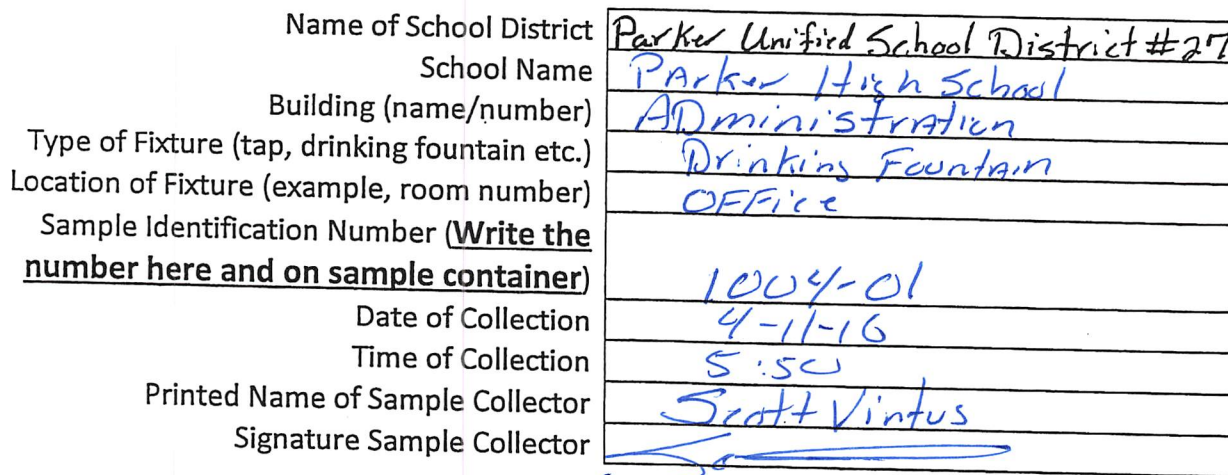 Name of School District Parker Unified School District #27
School Name Parker High School
Building (name/number) ADministration
Type of Fixture (tap, drinking fountain etc.) Drinking Fountain
Location of Fixture (example, room number) OFFice
Sample Identification Number (Write the
number here and on sample container) 1004-01
Date of Collection 4-11-16
Time of Collection 5:50
Printed Name of Sample Collector Scott Vintus
Signature Sample Collector